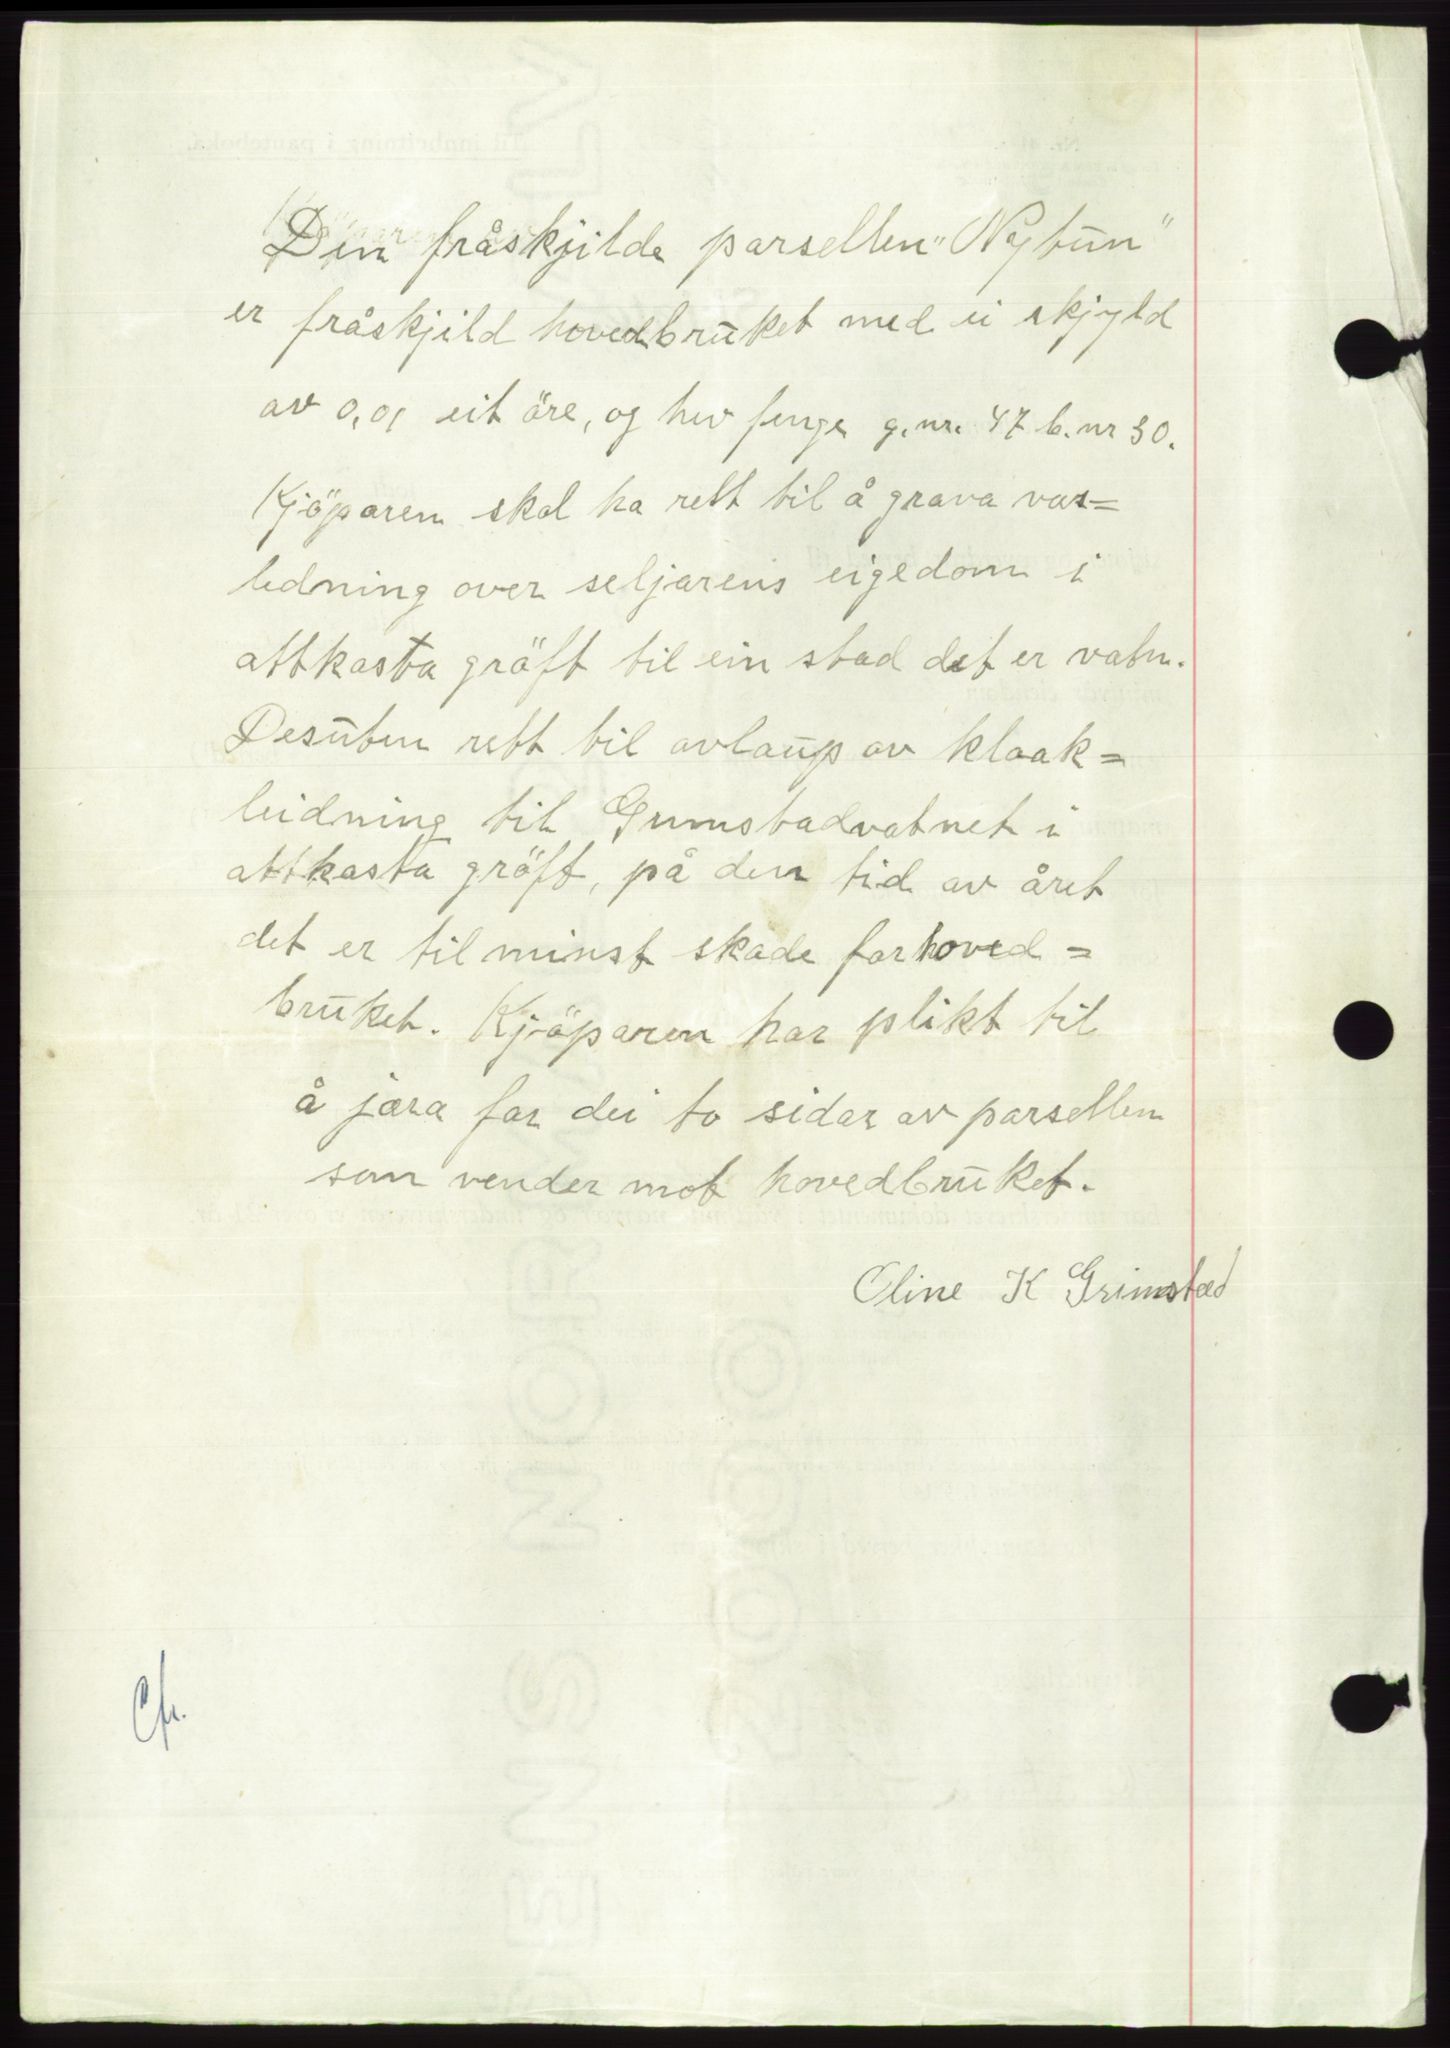 Den fråskjilde parsellen "Nytun"
er fråskjild hovedbruket med ei skjyld
av 0,01 eit öre, og hev fenge g.nr. 47 b.nr 30.
Kjöparen skal ha rett til å grava vas=
ledning over seljarens eigedom i
attkasta gröft til ein stad det er vatn.
Desuten rett til avlaup av kloak=
leidning til Grimstadvatnet i
attkasta gröft, på den tid av året
det er til minst skade for hoved=
bruket. Kjöparen har plikt til
å jæra for dei to sidar av parsellen
som vender mot hovedbruket.
Oline K Grimstad